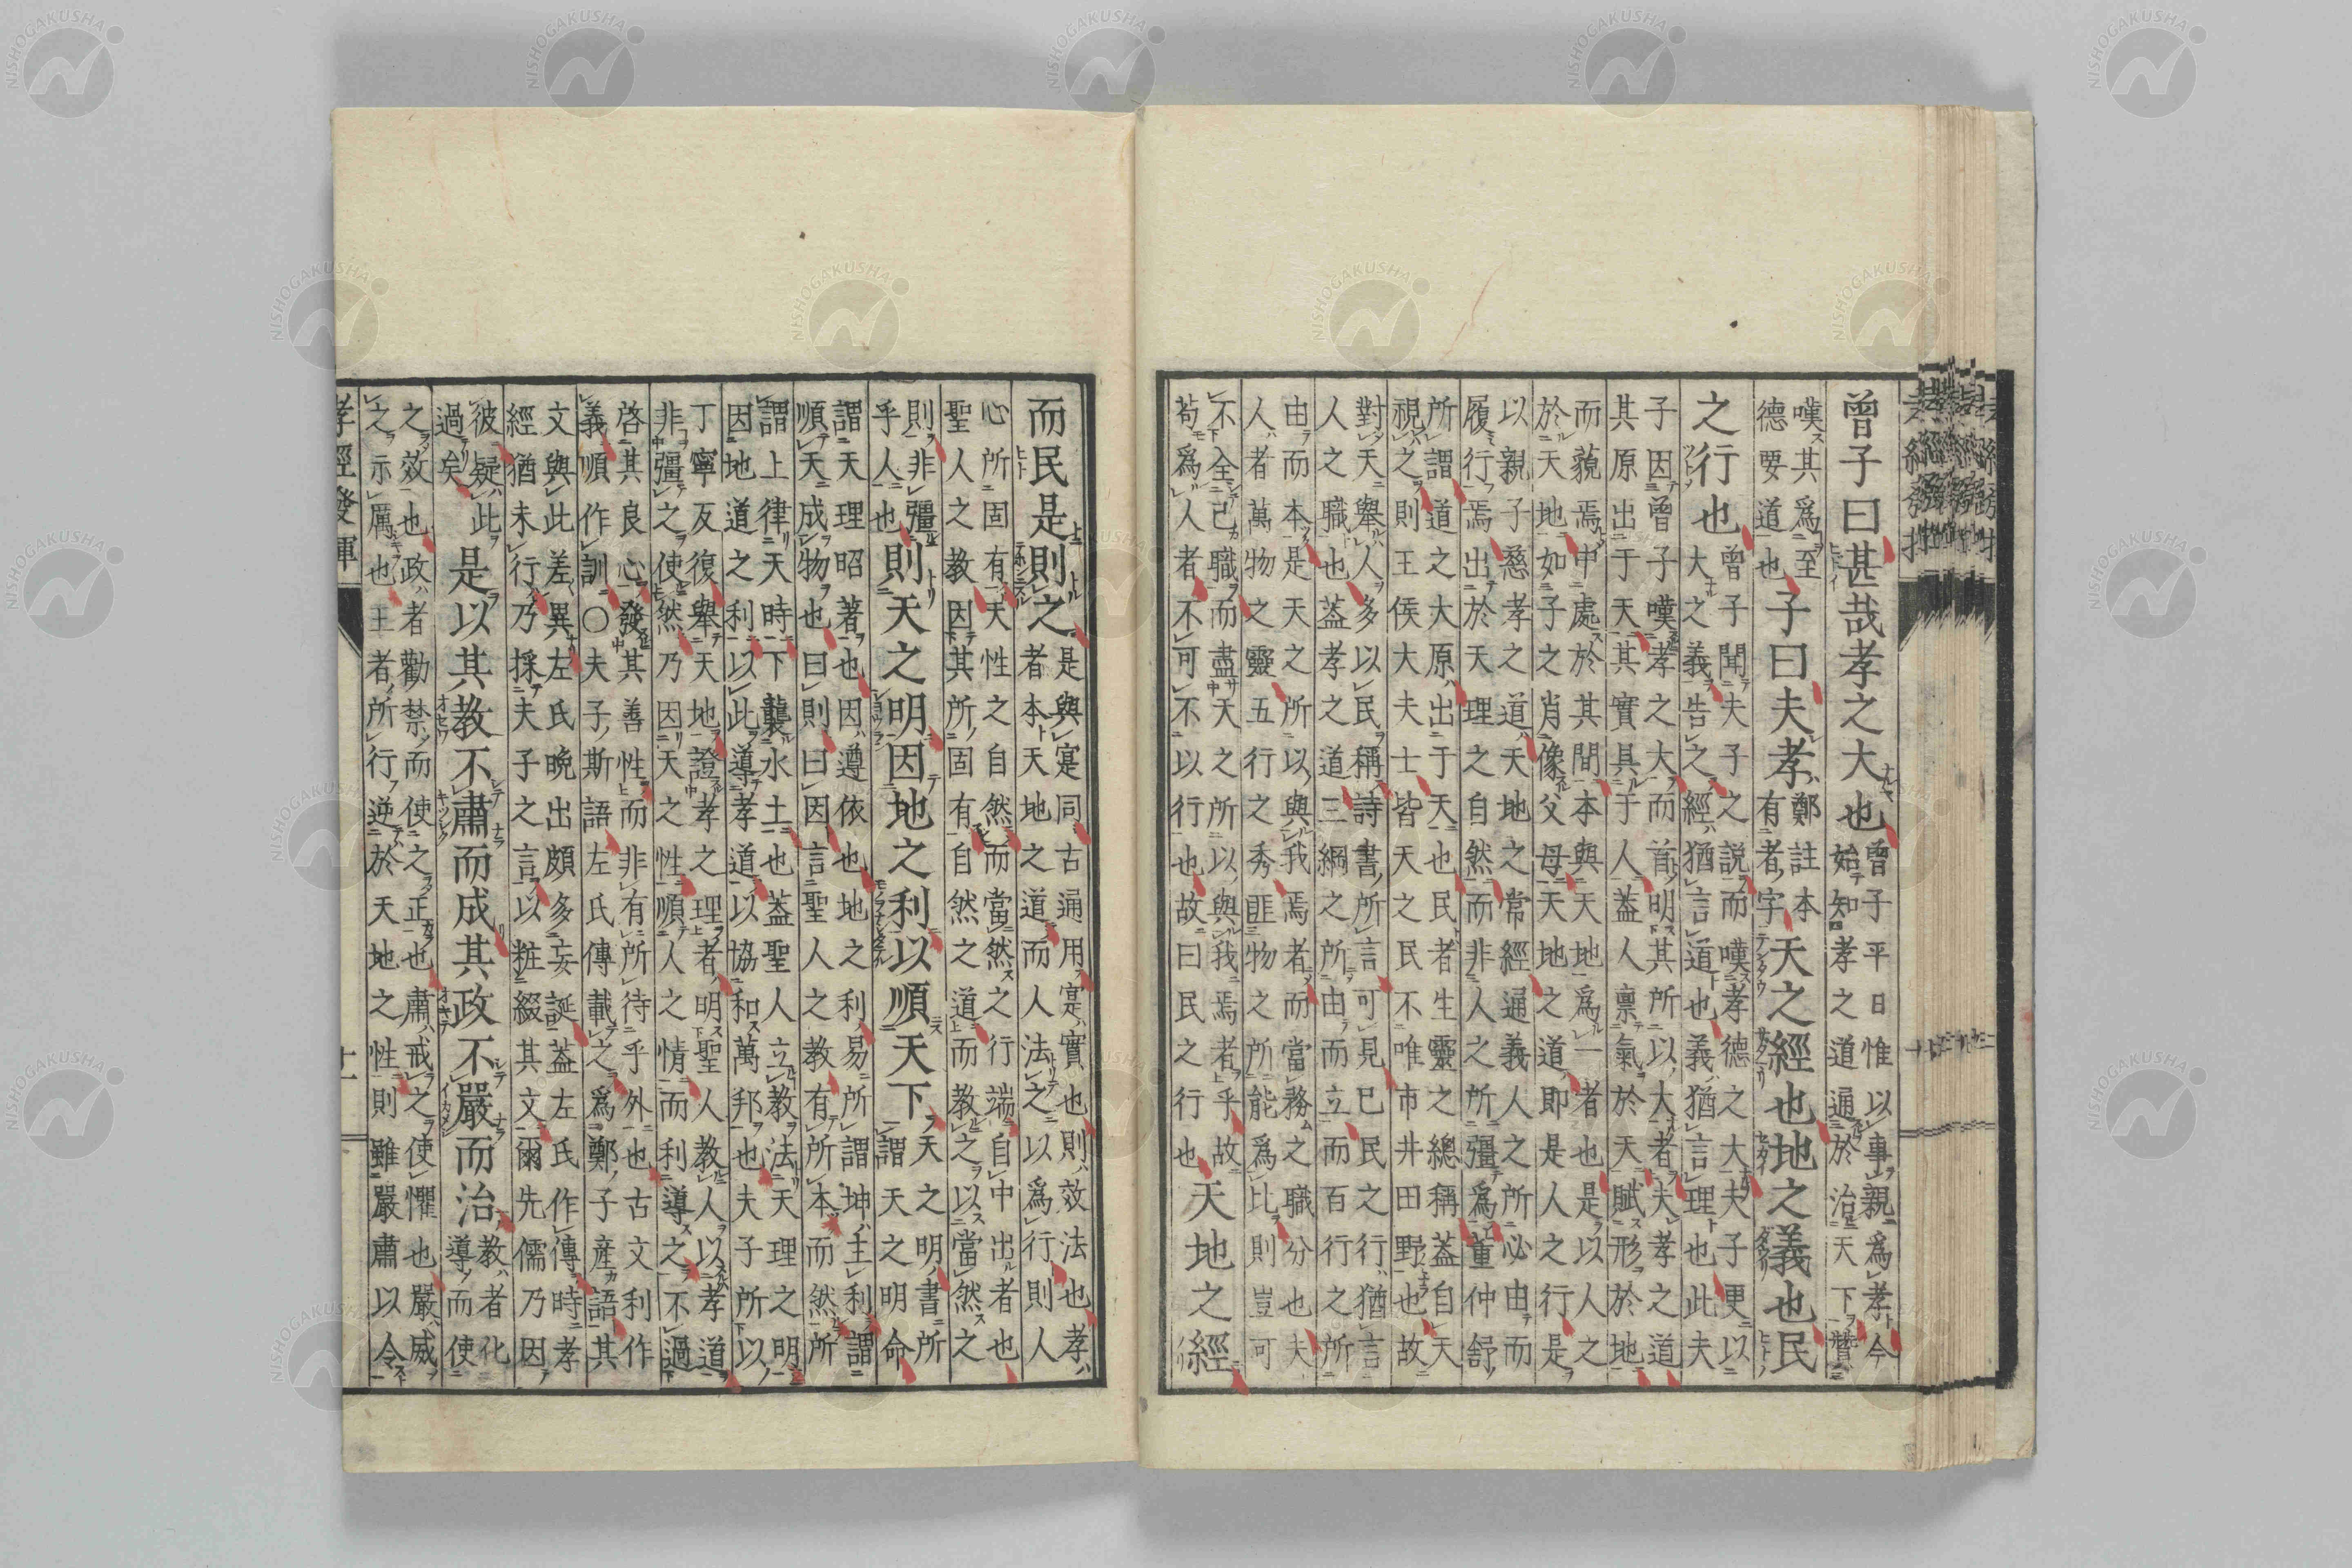 曾子曰甚哉孝之大也
曾子平日惟以事親爲孝今
始知孝之道通於治天下贊
嘆其爲至
德要道也
子曰夫孝
鄭註本
有者字
天之經也地之義也民
之行也
曾子聞夫子之説而嘆孝德之大夫子更以
大之義告之經猶言道也義猶言理也此夫
子因曾子嘆孝之大而首明其所以大者夫孝之道
其原出于天其實具于人蓋人禀氣於天賦形於地
而藐焉中處於其間本與天地爲一者也是以人之
於天地如子之肖像父母天地之道即是人之行是
以親子慈孝之道天地之常經通義人之所必由而
履行焉出於天理之自然而非人之所彊爲董仲舒
所謂道之大原出于天也民者生靈之總稱蓋自天
視之則王侯大夫士皆天之民不唯市井田野也故
對天舉人多以民稱詩書所言可見已民之行猶言
人之職也蓋孝之道三綱之所由而立而百行之所
由而本是天之所以與我焉者而當務之職分也夫
人者萬物之靈五行之秀匪物之所能爲比則豈可
不全己職而盡天之所以與我焉者乎故
苟爲人者不可不以行也故曰民之行也
天地之經
而民是則之
是與寔同古通用寔實也則效法也孝
者本天地之道而人法之以爲行則人
心所固有天性之自然而當然之行端自中出者也
聖人之教因其所固有自然之道而教之以當然之
則非彊
乎人也
則天之明因地之利以順天下
天之明書所
謂天之明命
謂天理昭著也因遵依也地之利易所謂坤主利謂
順天成物也曰則曰因言聖人之教有所本而然所
謂上律天時下襲水土也蓋聖人立教法天理之明
因地道之利以此導孝道以協和萬邦也夫子所以
丁寧反復舉天地證孝之理者明聖人教人以孝道
非彊之使然乃因天之性順人之情而利導之不過
啓其良心發其善性而非有所待乎外也古文利作
義順作訓○夫子斯語左氏傳載之爲鄭子産語其
文與此差異左氏晩出頗多妄誕蓋左氏作傳時孝
經猶未行乃採夫子之言以粧綴其文爾先儒乃因
彼疑此
過矣
是以其教不肅而成其政不嚴而治
教者化
導而使
之效也政者勸禁而使之正也肅戒之使懼也嚴威
之示厲也王者所行逆於天地之性則雖嚴肅以令
孝經發揮